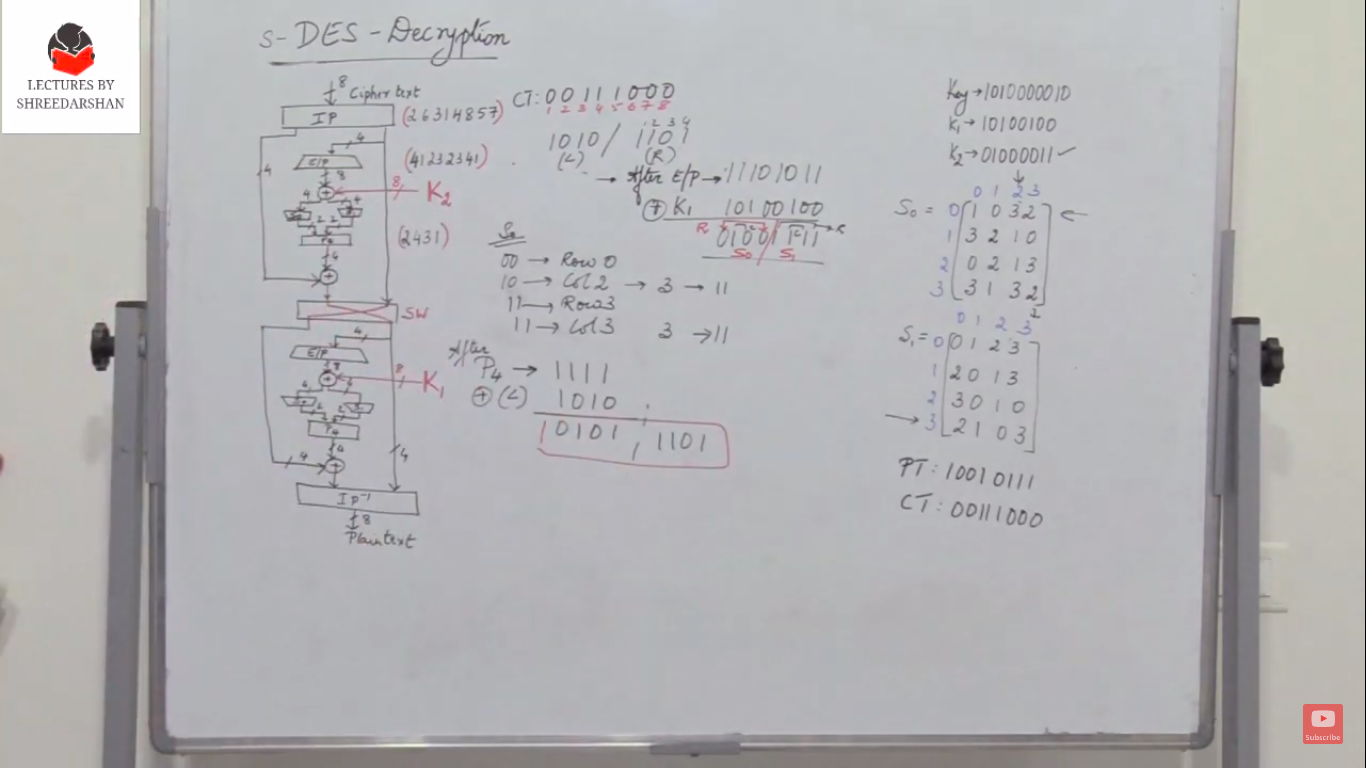 LECTURES BY
SHREEDARSHAN
S-DES-Decryption
8 Cipher text
IP
(26314857)
4
E/P
(41232341)
8
4
8
K2
4 4
2 2
P4
(2431)
4
SW
4
E/P
8
8
K1
4 4
2 2
P4
4
4
4
IP-1
8
Plain text
CT: 00111000
1 2 3 4 5 6 7 8
1 2 3 4
1010 / 1101
(L) (R)
→ After E/P → 11101011
⊕ K1 10100100
R R
01001111
S0 / S1
S0
00 → Row 0
10 → Col 2 → 3 → 11
11 → Row 3
11 → Col 3 3 → 11
After
P4 → 1111
⊕ (L) 1010
0101, 1101
Key → 1010000010
K1 → 10100100
K2 → 01000011 ✓
0 1 2 3
S0 = 0 1 0 3 2
1 3 2 1 0
2 0 2 1 3
3 3 1 3 2
0 1 2 3
S1 = 0 0 1 2 3
1 2 0 1 3
2 3 0 1 0
→ 3 2 1 0 3
PT: 10010111
CT: 00111000
Subscribe